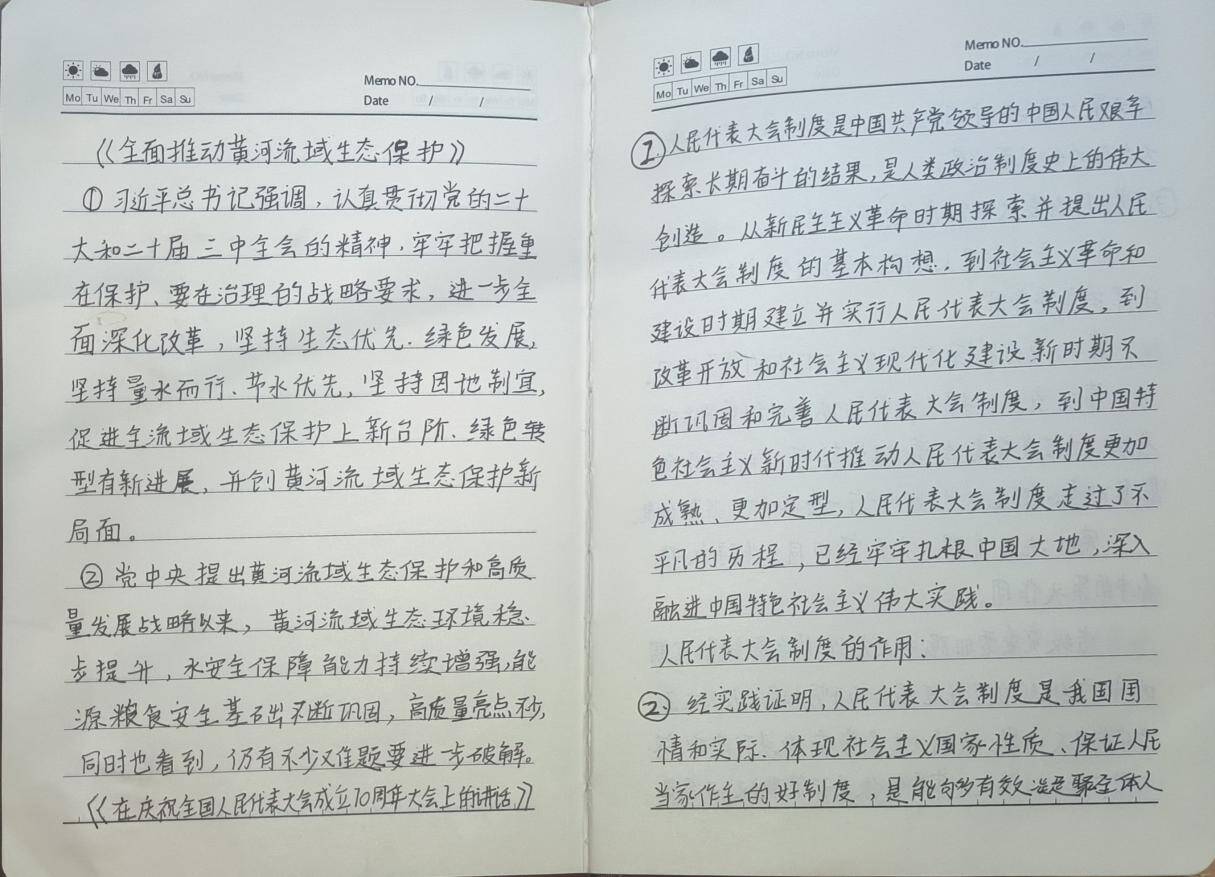 Memo NO.
Mo Tu We Th Fr Sa Su
Date / /
《全面推动黄河流域生态保护》
①习近平总书记强调，认真贯彻党的二十
大和二十届三中全会的精神，牢牢把握重
在保护、要在治理的战略要求，进一步全
面深化改革，坚持生态优先、绿色发展，
坚持量水而行、节水优先，坚持因地制宜，
促进全流域生态保护上新台阶、绿色转
型有新进展，开创黄河流域生态保护新
局面。
②党中央提出黄河流域生态保护和高质
量发展战略以来，黄河流域生态环境稳
步提升，水安全保障能力持续增强，能
源粮食安全基石出不断巩固，高质量亮点不少，
同时也看到，仍有不少难题要进一步破解。
《在庆祝全国人民代表大会成立70周年大会上的讲话》
Memo NO.
Mo Tu We Th Fr Sa Su
Date / /
①人民代表大会制度是中国共产党领导的中国人民艰辛
探索长期奋斗的结果，是人类政治制度史上的伟大
创造。从新民主主义革命时期探索并提出人民
代表大会制度的基本构想，到社会主义革命和
建设时期建立并实行人民代表大会制度，到
改革开放和社会主义现代化建设新时期不
断巩固和完善人民代表大会制度，到中国特
色社会主义新时代推动人民代表大会制度更加
成熟、更加定型，人民代表大会制度走过了不
平凡的历程，已经牢牢扎根中国大地，深入
融进中国特色社会主义伟大实践。
人民代表大会制度的作用：
②经实践证明，人民代表大会制度是我国国
情和实际、体现社会主义国家性质、保证人民
当家作主的好制度，是能够有效凝聚全体人